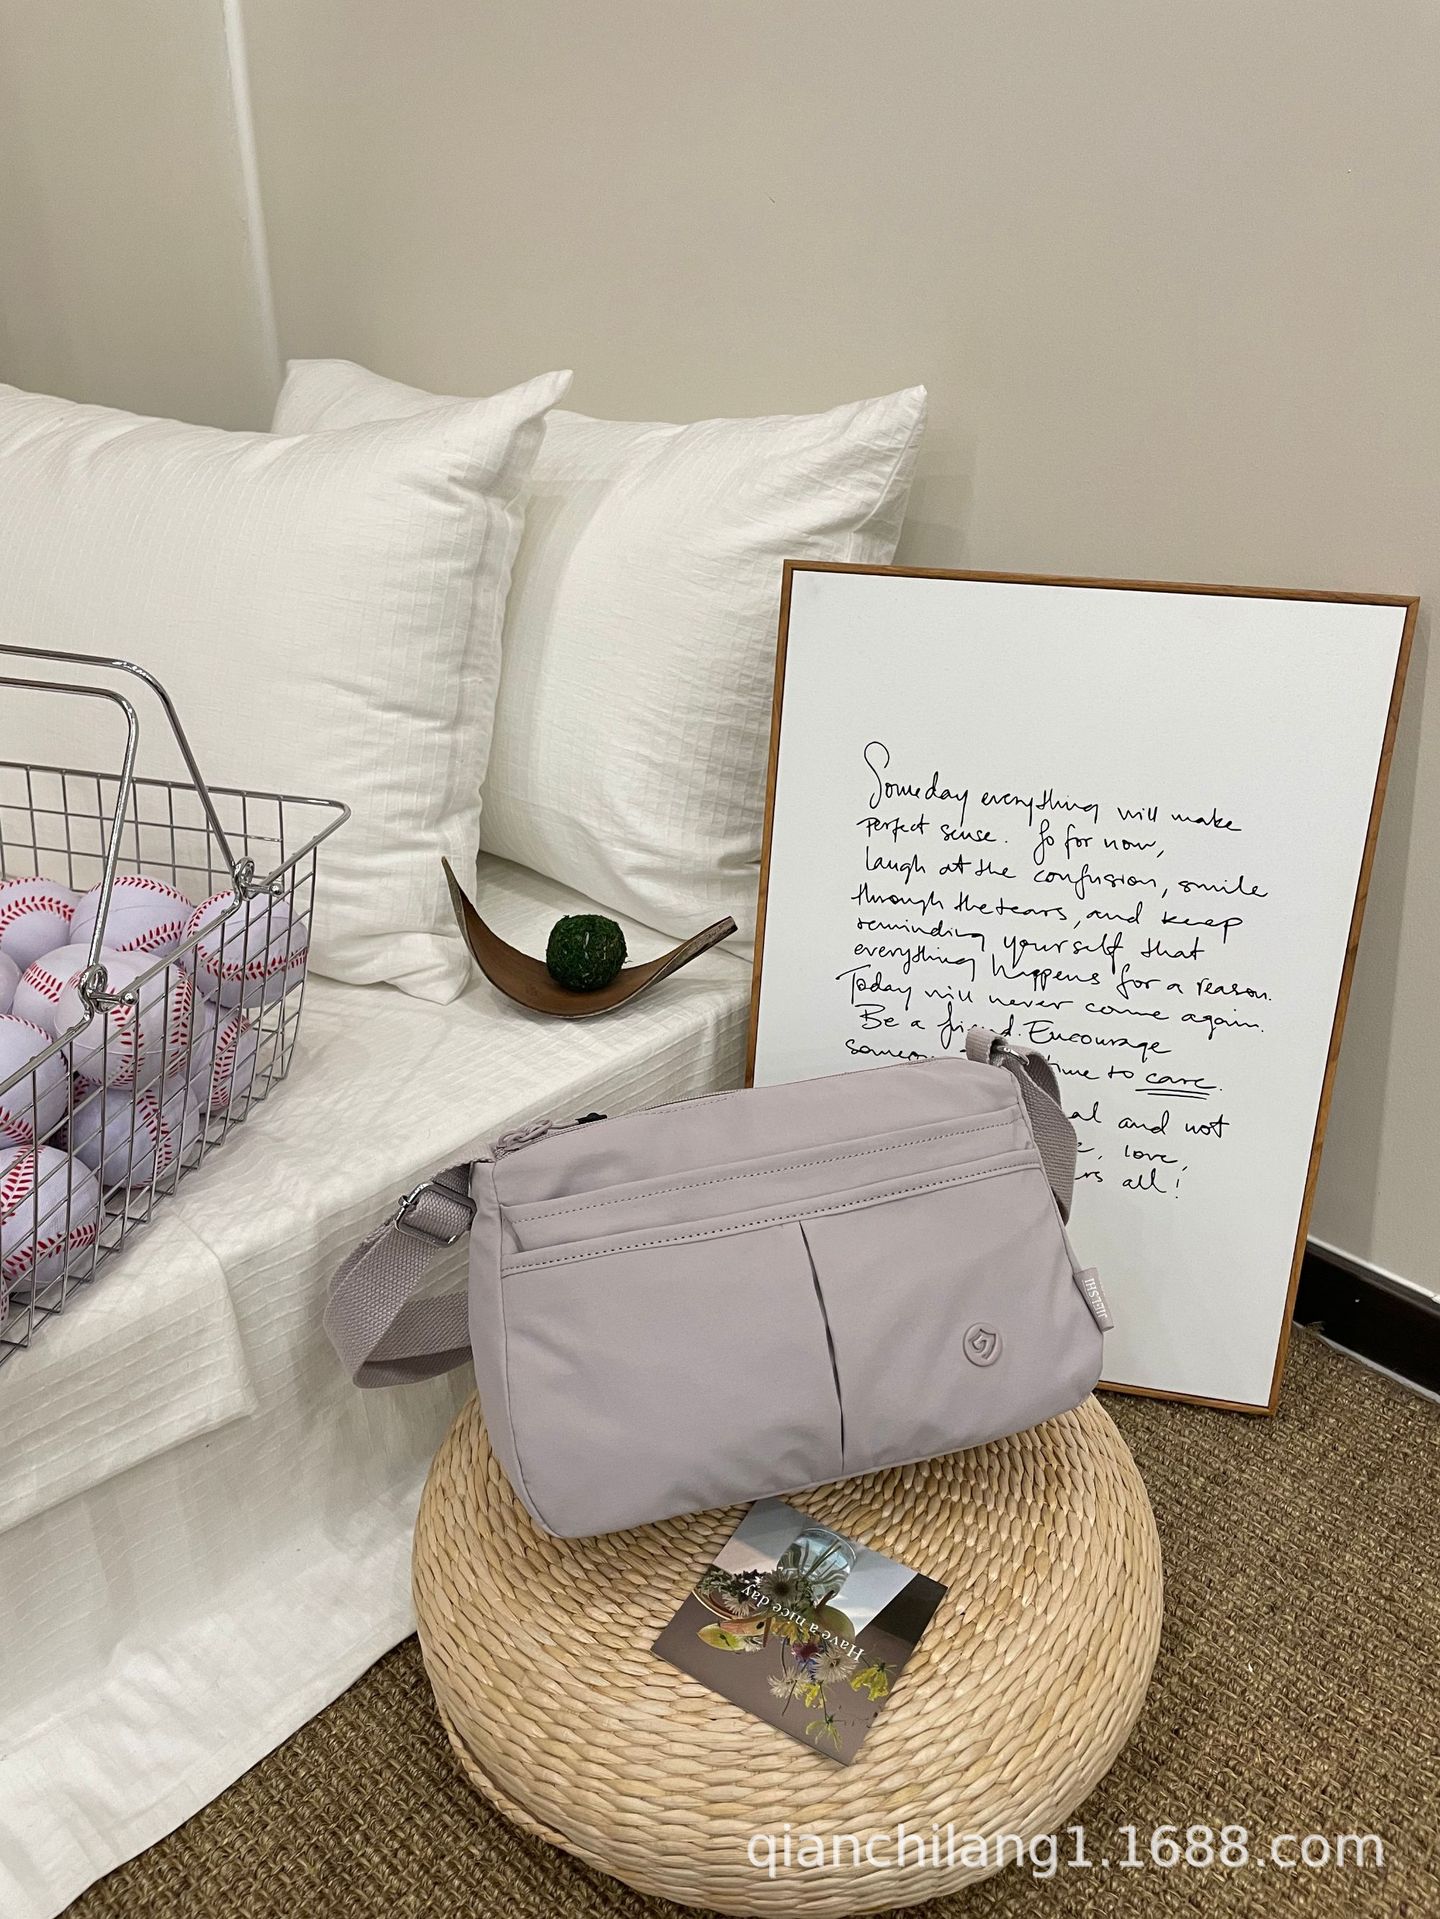 Someday everything will make
perfect sense. So for now,
laugh at the confusion, smile
through the tears, and keep
reminding yourself that
everything happens for a reason.
Today will never come again.
Be a friend. Encourage
time to care.
and not
love,
all!
JIELSHI
Have a nice day
qianchilang1.1688.com